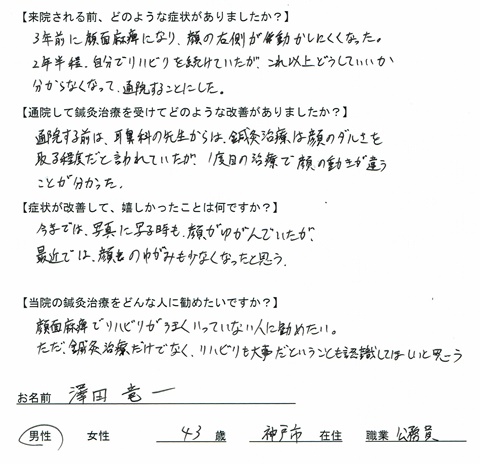 【来院される前、どのような症状がありましたか？】
3年前に顔面麻痺になり、顔の右側が動かしにくくなった。
2年半程、自分でリハビリを続けていたが、これ以上どうしていいか
分からなくなって、通院することにした。
【通院して鍼灸治療を受けてどのような改善がありましたか？】
通院する前は、耳鼻科の先生からは、鍼灸治療は顔のダルさを
取る程度だと言われていたが、1度目の治療で顔の動きが違う
ことが分かった。
【症状が改善して、嬉しかったことは何ですか？】
今までは、写真に写る時も、顔がゆがんでいたが、
最近では、顔のゆがみも少なくなったと思う。
【当院の鍼灸治療をどんな人に勧めたいですか？】
顔面麻痺でリハビリがうまくいっていない人に勧めたい。
ただ、鍼灸治療だけでなく、リハビリも大事だということも認識してほしいと思う
お名前 澤田 竜一
男性 女性 43 歳 神戸市 在住 職業 公務員